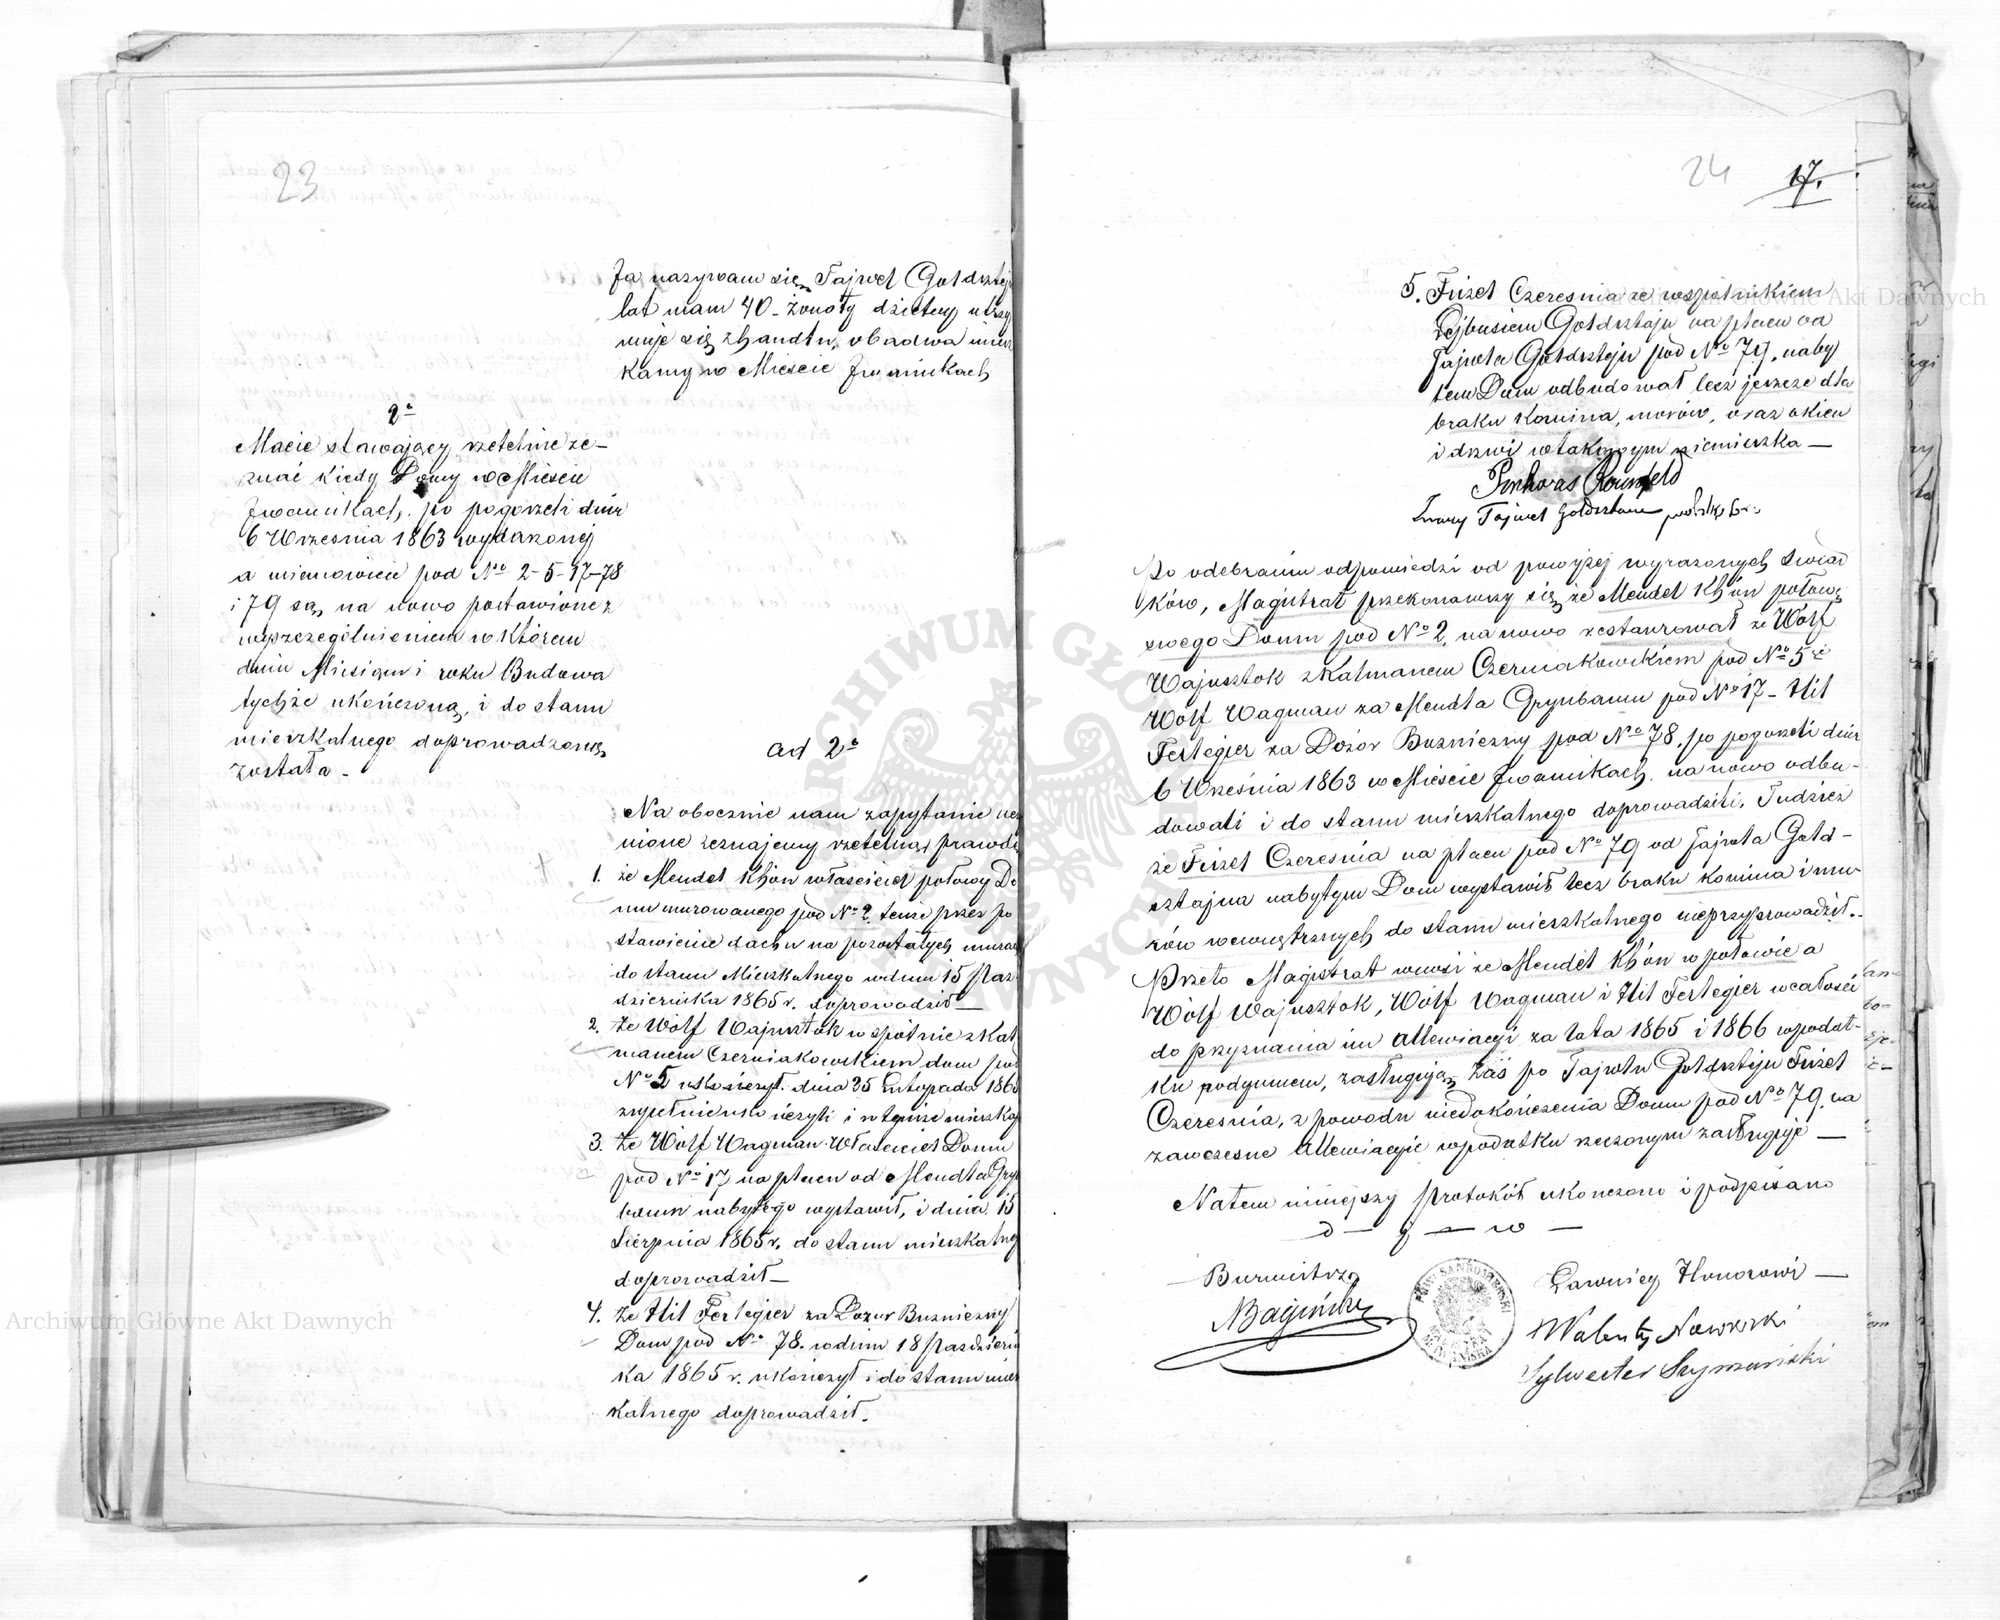 23
Ja nazywam się Fajwel Goldsztej
lat mam 40 - żonaty dzietny utrzy
muje się z handlu, obadwa miesz
kamy w Mieście Iwanikach
2o
Macie stawający rzetelnie ze-
znać kiedy Domy w Mieście
Iwanikach, po pogorzeli dnia
6 Września 1863 wydarzonej
a mianowicie pod No 2-5-17-78
i 79 są na nowo postawione z
wyszczególnieniem w którem
dniu Miesiącu i roku Budowa
tychże ukończoną, i do stanu
mieszkalnego doprowadzoną
została -
ad 2o
Na obocznie nam zapytanie uczy
nione zeznajemy rzetelną prawdę
1. że Mendel Khón właściciel połowy Do
mu murowanego pod No 2. tenże przez po
stawienie dachu na pozostałych murach
do stanu Mieszkalnego w dniu 15 Paź
dziernika 1865 r. doprowadził —
2. Że Wólf Wajnsztok wspólnie z Kal
manem Czerniakowskiem dom pod
No 5 dnia 25 Listopada 186
zupełnie i w tymże mieszka
3. Że Wólf Wagman Właściciel Domu
pod No 17 na placu od Mendla Gryn
bauma nabytego wystawił, i dnia 15
Sierpnia 1865 r. do stanu mieszkalneg
doprowadził —
4. Że Hil Ferlegier za Dozór Buzniczny
Dom pod No 78. w dniu 18 Październi
ka 1865 r. ukończył i do stanu miesz
kalnego doprowadził.
24 17.
5. Fiszel Czeresnia ze wspólnikiem
Lejbusiem Goldsztajn na placu od
Fajwla Goldsztejn pod No 79. naby
tem Dom odbudował lecz jeszcze dla
braku Komina, murów, oraz okien
i drzwi w takowym niemieszka —
Pinkwas
Fajwel Goldsztain
Po odebraniu odpowiedzi od powyżej wyrażonych Świad
ków, Magistrat przekonawszy się że Mendel Khón połowę
swego Domu pod No 2. na nowo restaurował że Wólf
Wajnsztok z Kalmanem Czerniakowskiem pod No 5
Wólf Wagman za Mendla Grynbauma pod No 17 - Hil
Ferlegier za Dozór Buzniczny pod No 78, po pogorzeli dnia
6 Września 1863 w Mieście Iwanikach, na nowo odbu-
dowali i do stanu mieszkalnego doprowadzili, Tudzież
że Fiszel Czeresnia na placu pod No 79 od Fajwla Gold-
sztajna nabytym Dom wystawił lecz braku komina i mu-
rów wewnętrznych do stanu mieszkalnego nieprzyprowadził.
Przeto Magistrat wnosi że Mendel Khón w połowie a
Wólf Wajnsztok, Wólf Wagman i Hil Ferlegier w całości
do przyznania im allewiacyi za lata 1865 i 1866 w podat-
ku podymnem, zasługują, zaś po Fajwlu Goldsztejn Fiszel
Czeresnia, z powodu niedokończenia Domu pod No 79. na
zawczesne allewiacyie w podatku rzeczonym zasługuje —
Na tem niniejszy protokół ukończono i podpisano
d — j — w —
Burmistrz
Bagiński
Ławnicy Honorowi —
Walenty Nawrocki
Sylwester Szymański
Archiwum Główne Akt Dawnych
Archiwum Główne Akt Dawnych
ARCHIWUM GŁÓWNE AKT DAWNYCH